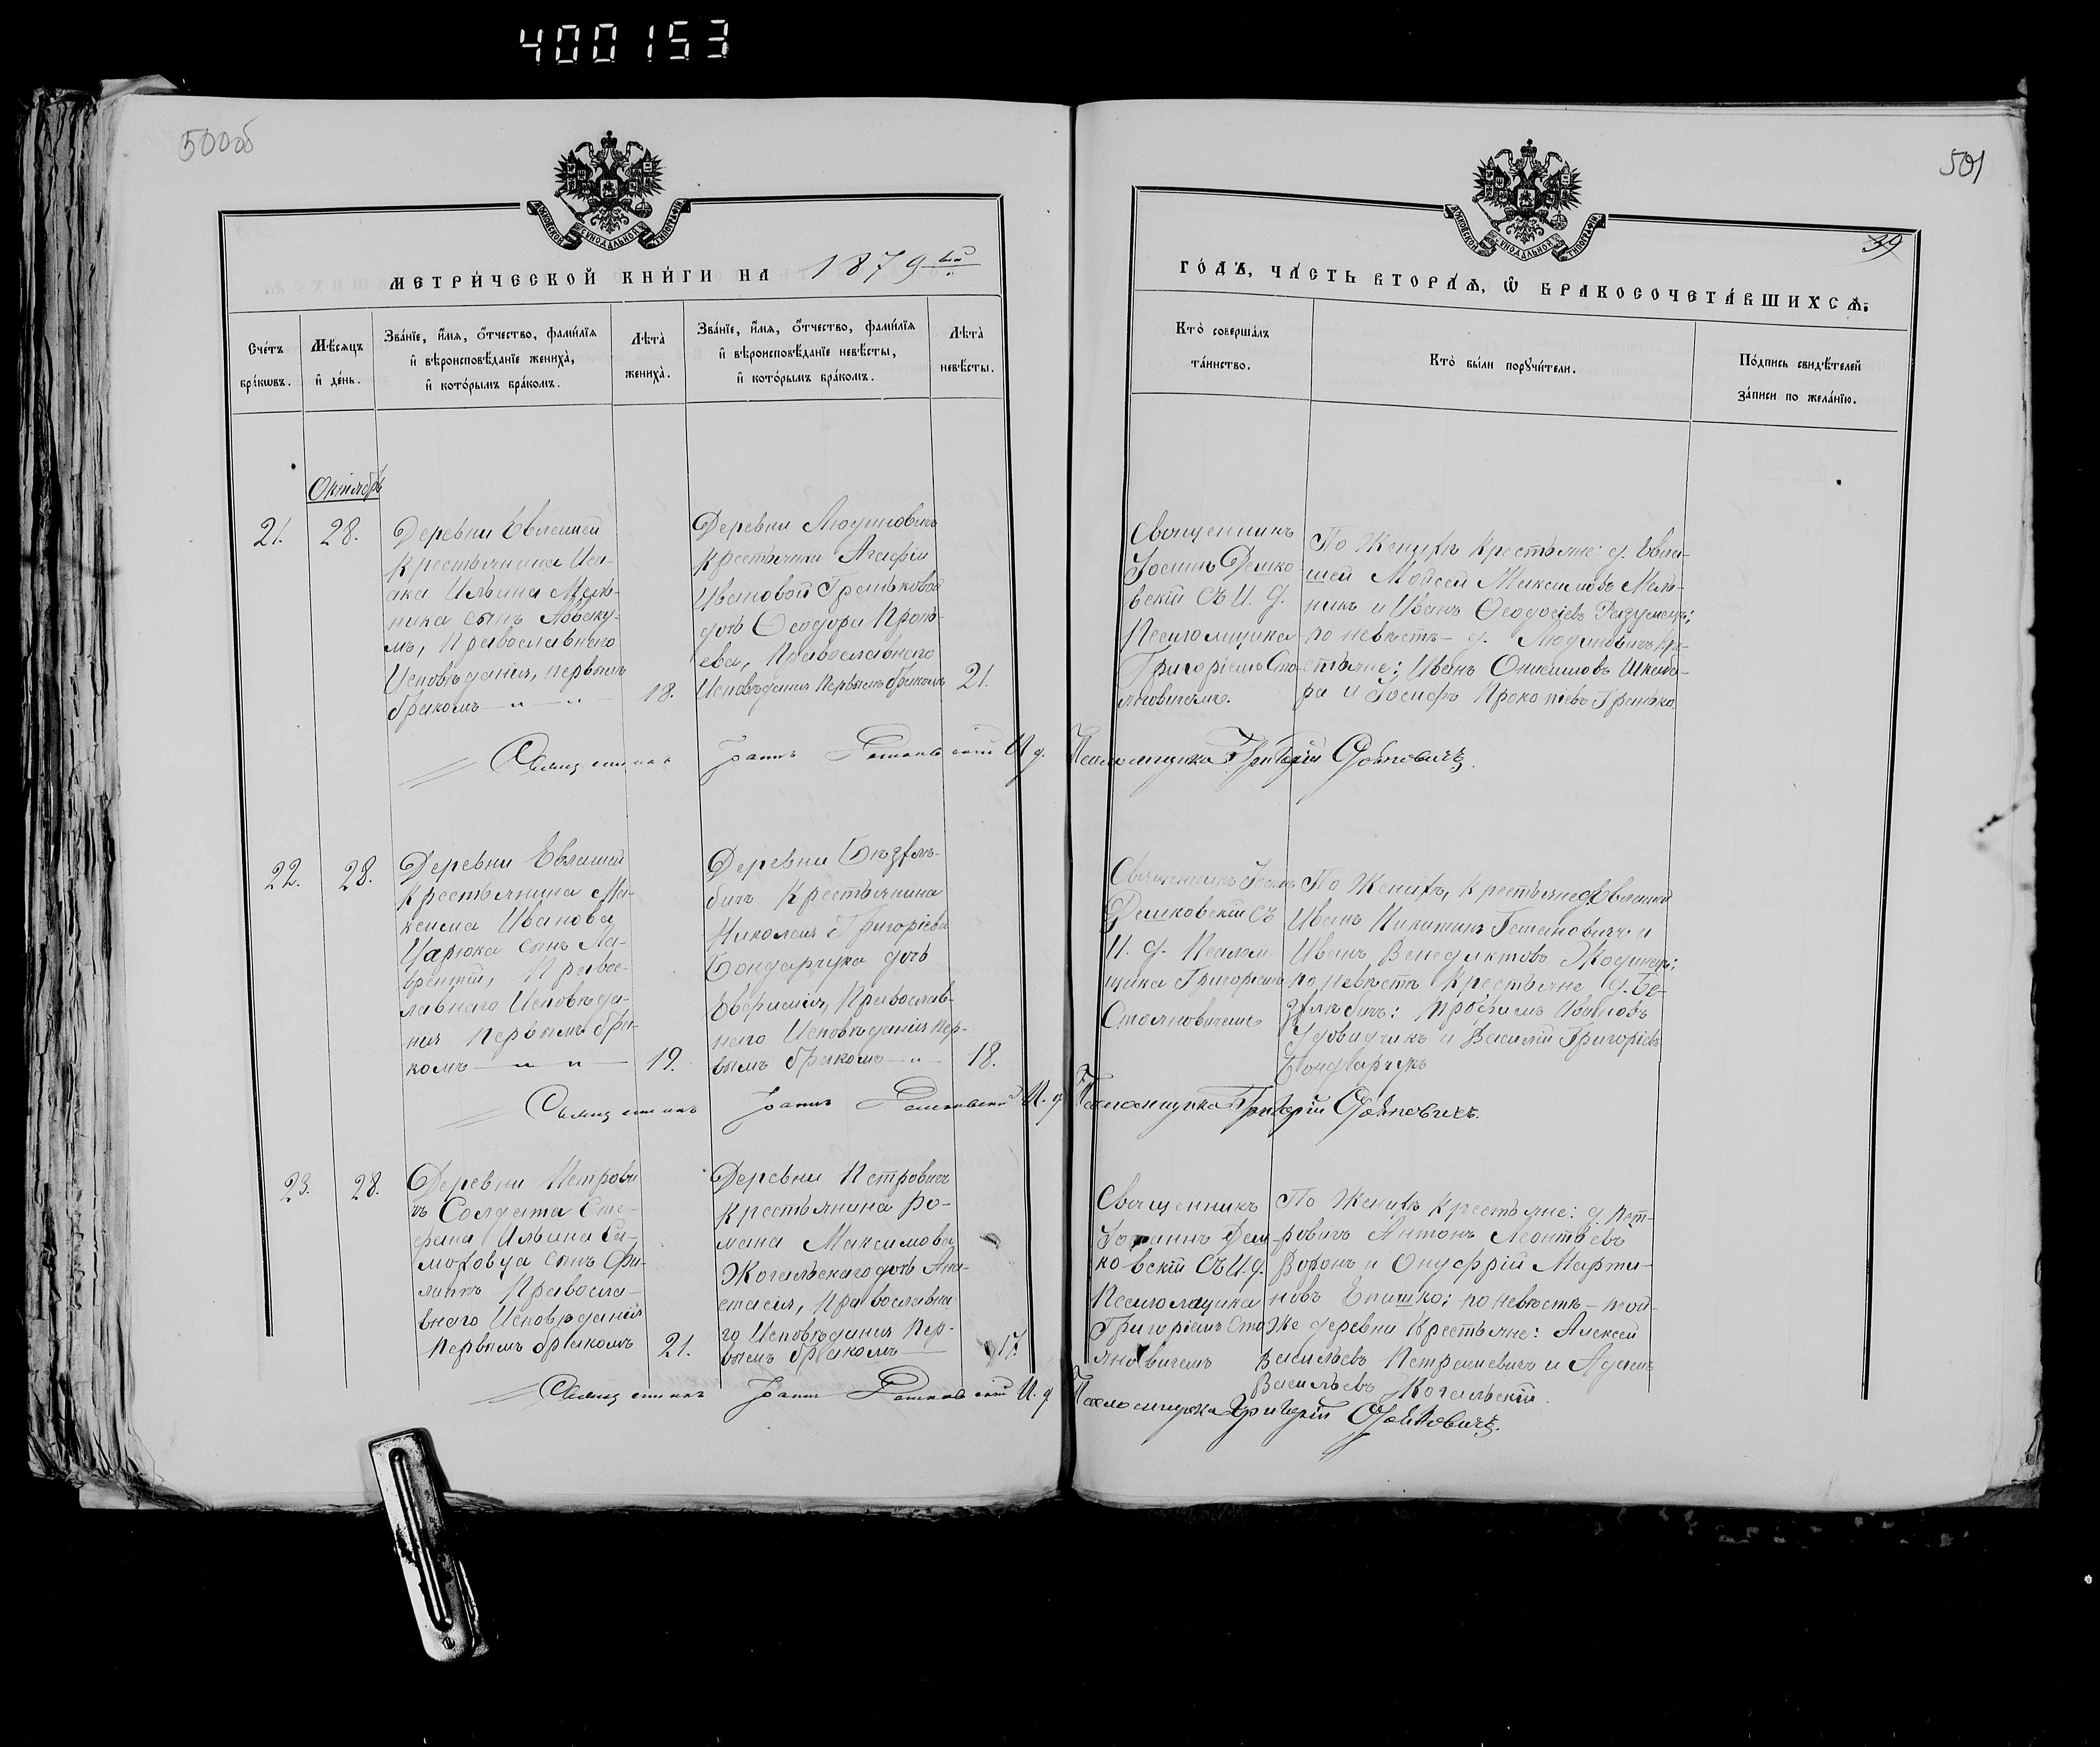 400153
500об
501
39
МОСКОВСКОЙ СУНОДАЛЬНОЙ ТИПОГРАФІИ
МОСКОВСКОЙ СУНОДАЛЬНОЙ ТИПОГРАФІИ
МЕТРИ́ЧЕСКОЙ КНИ́ГИ НА 1879ый
ГО́ДЪ, ЧА́СТЬ ВТОРА́Ѧ, Ѽ БРАКОСОЧЕТА́ВШИХСѦ.
Сче́тъ
бра́кѡвъ.
Мѣ́сяцъ
и҆ де́нь.
Зва́нїе, и҆́мѧ, ѻ҆́тчество, фамі́лїѧ
и҆ вѣроисповѣ́данїе жениха̀,
и҆ кото́рымъ бра́комъ.
Лѣ́та
жениха̀.
Зва́нїе, и҆́мѧ, ѻ҆́тчество, фамі́лїѧ
и҆ вѣроисповѣ́данїе невѣ́сты,
и҆ кото́рымъ бра́комъ.
Лѣ́та
невѣ́сты.
Кто̀ соверша́лъ
та́инство.
Кто̀ бы́ли порꙋчи́тели.
По́дпись свидѣ́телей
за́писи по жела́нїю.
Октябрь
21.
28.
Деревни Евлашей
крестьянина Иса-
ака Ильина Мель-
ника сынъ Авваку-
мъ, Православнаго
Исповѣданія, первымъ
бракомъ — „ — „ —
18.
Деревни Людиновичъ
крестьянки Агафіи
Ивановой Гранковой
дочь Ѳеодора Прокь-
ева, Православнаго
Исповѣданія первымъ бракомъ
21.
Священникъ
Іоаннъ Дешко-
вскій съ И. д.
Псаломщика
Григоріемъ Сто-
яновичемъ.
По Женихѣ крестьяне: д. Евла-
шей Моисей Максимовъ Мель-
никъ и Иванъ Ѳеодосіевъ Разумецъ;
по невѣстѣ — д. Людиновичъ кре-
стьяне: Иванъ Онисимовъ
ра и Іосифъ Прокопіевъ Гранько
Священникъ Іоаннъ Дешковскій И. д. Псаломщика Григорій Стояновичъ.
22.
28.
Деревни Евлашей
крестьянина Ма-
ксима Иванова
Царюка сынъ Ла-
врентій, Правос-
лавнаго Исповѣда-
нія Первымъ бра-
комъ — „ — „ —
19.
Деревни Бѣздѣж-
бичъ крестьянина
Николая Григоріева
Бондарчука дочь
Евфимія, Православ-
наго Исповѣданія пер-
вымъ бракомъ — „ —
18.
Священникъ Іоаннъ
Дешковскій съ
И. д. Псалом-
щика Григоріемъ
Стояновичемъ
По Женихѣ, крестьяне д. Евлашей
Иванъ Никитинъ и
Иванъ Венедиктовъ Жодинецъ;
по невѣстѣ крестьяне д. Бе-
Трофимъ Ивановъ
Удовидчикъ и Василій Григоріевъ
Бондарчукъ
Священникъ Іоаннъ Дешковскій И. д. Псаломщика Григорій Стояновичъ.
23.
28.
Деревни Петрови
чъ Солдата Сте-
фана Ильина Са-
моховца сынъ Фи-
липпъ Правосла-
внаго Исповѣданія
Первымъ бракомъ
21.
Деревни Петровичъ
крестьянина Ро-
мана Максимова
Жогальскаго дочь Ана-
стасія, Православна
го Исповѣданія Пер-
вымъ бракомъ —
17.
Священникъ
Іоаннъ Деш-
ковскій съ И. д.
Псаломщика
Григоріемъ Сто
яновичемъ
По Женихѣ крестьяне: д. Пет-
ровичъ Антонъ Леонтьевъ
и Онуфрій Марти-
новъ Епишко; по невѣстѣ — той-
же деревни крестьяне: Алексей
Васильевъ Петрашевичъ и Адамъ
Васильевъ Жогальскій.
Священникъ Іоаннъ Дешковскій И. д. Псаломщика Григорій Стояновичъ.